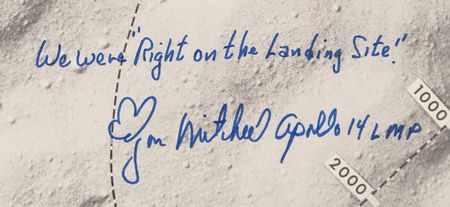 We were "Right on the Landing Site."
Edgar Mitchell Apollo 14 LMP
1000
2000